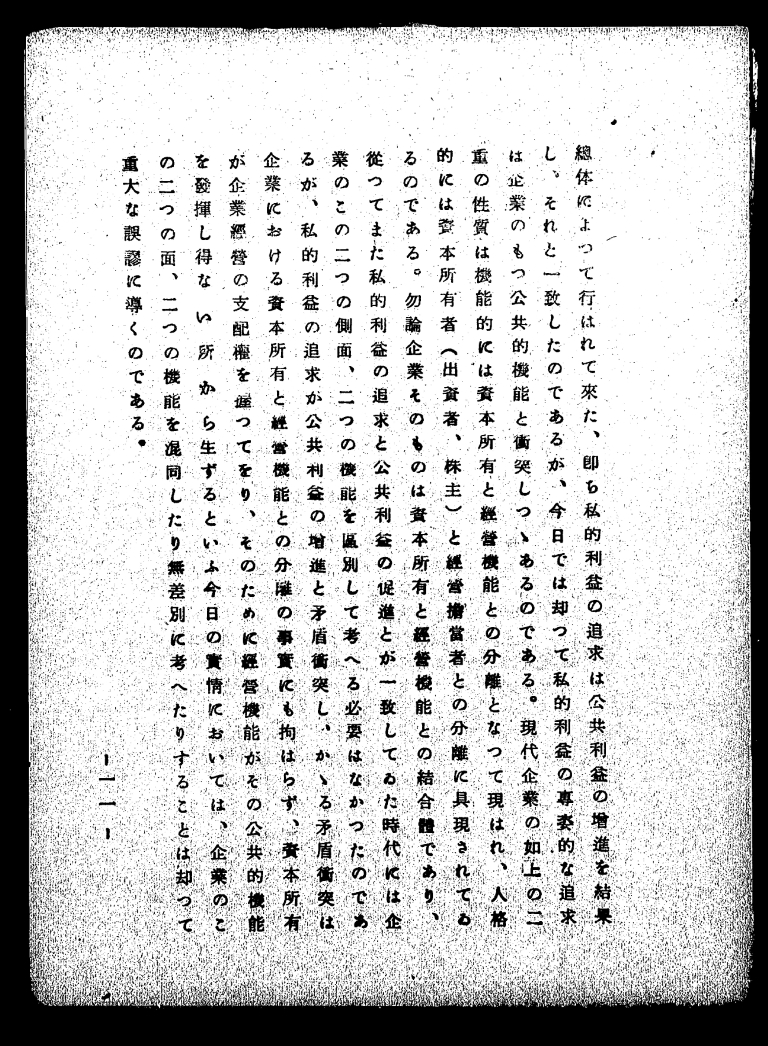 總体によつて行はれて來た、卽ち私的利益の追求は公共利益の增進を結果
し、それと一致したのであるが、今日では却つて私的利益の專恣的な追求
は企業のもつ公共的機能と衝突しつゝあるのである。現代企業の如上の二
重の性質は機能的には資本所有と經營機能との分離となつて現はれ、人格
的には資本所有者（出資者、株主）と經營擔當者との分離に具現されてゐ
るのである。勿論企業そのものは資本所有と經營機能との結合體であり、
從つてまた私的利益の追求と公共利益の促進とが一致してゐた時代には企
業のこの二つの側面、二つの機能を區別して考へる必要はなかつたのであ
るが、私的利益の追求が公共利益の增進と矛盾衝突し、かゝる矛盾衝突は
企業における資本所有と經營機能との分離の事實にも拘はらず、資本所有
が企業經營の支配權を握つてをり、そのために經營機能がその公共的機能
を發揮し得ない所から生ずるといふ今日の實情においては、企業のこ
の二つの面、二つの機能を混同したり無差別に考へたりすることは却つて
重大な誤謬に導くのである。
-一一-